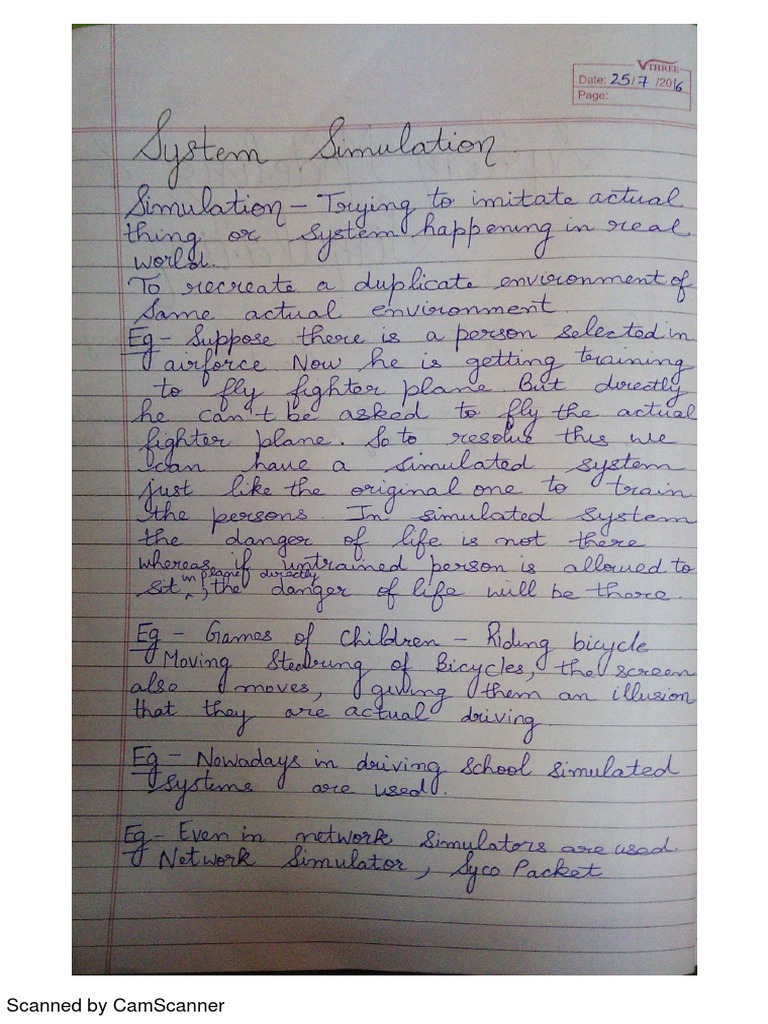 VTHREE
Date: 25/7/2016
Page:
System Simulation
Simulation - Trying to imitate actual
thing or system happening in real
world.
To recreate a duplicate environment of
same actual environment
Eg - Suppose there is a person selected in
airforce Now he is getting training
to fly fighter plane But directly
he can't be asked to fly the actual
fighter plane. So to resolve this we
can have a simulated system
just like the original one to train
the persons In simulated system
the danger of life is not there
whereas if untrained person is allowed to
sit in plane directly, the danger of life will be there.
Eg - Games of Children - Riding bicycle
Moving Stearing of Bicycles, the screen
also moves, giving them an illusion
that they are actual driving
Eg - Nowadays in driving school simulated
systems are used.
Eg - Even in network simulators are used.
Network Simulator, Syco Packet
Scanned by CamScanner